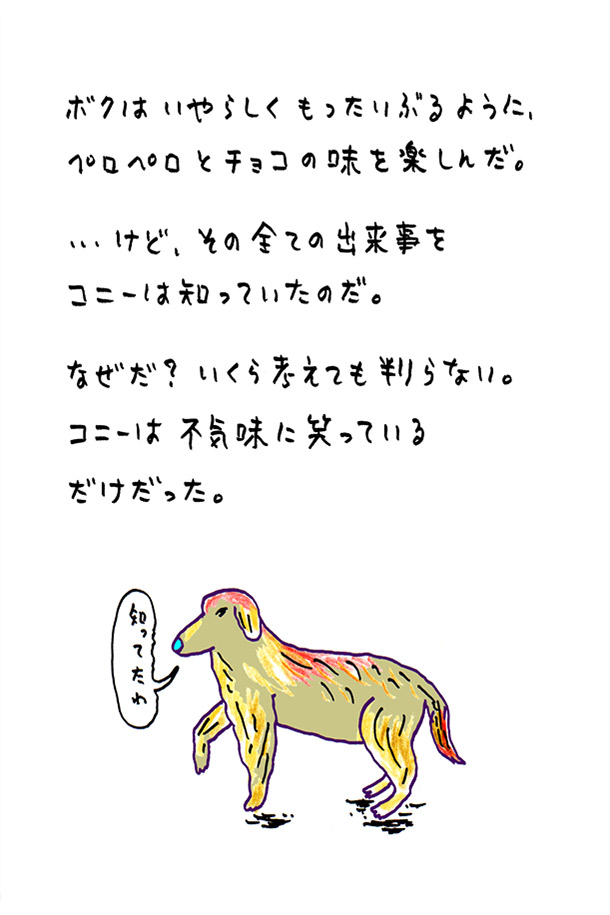 ボクは いやらしく もったいぶるように、
ペロペロとチョコの味を楽しんだ。
…けど、その全ての出来事を
コニーは知っていたのだ。
なぜだ？いくら考えても判らない。
コニーは 不気味に笑っている
だけだった。
知ってたわ